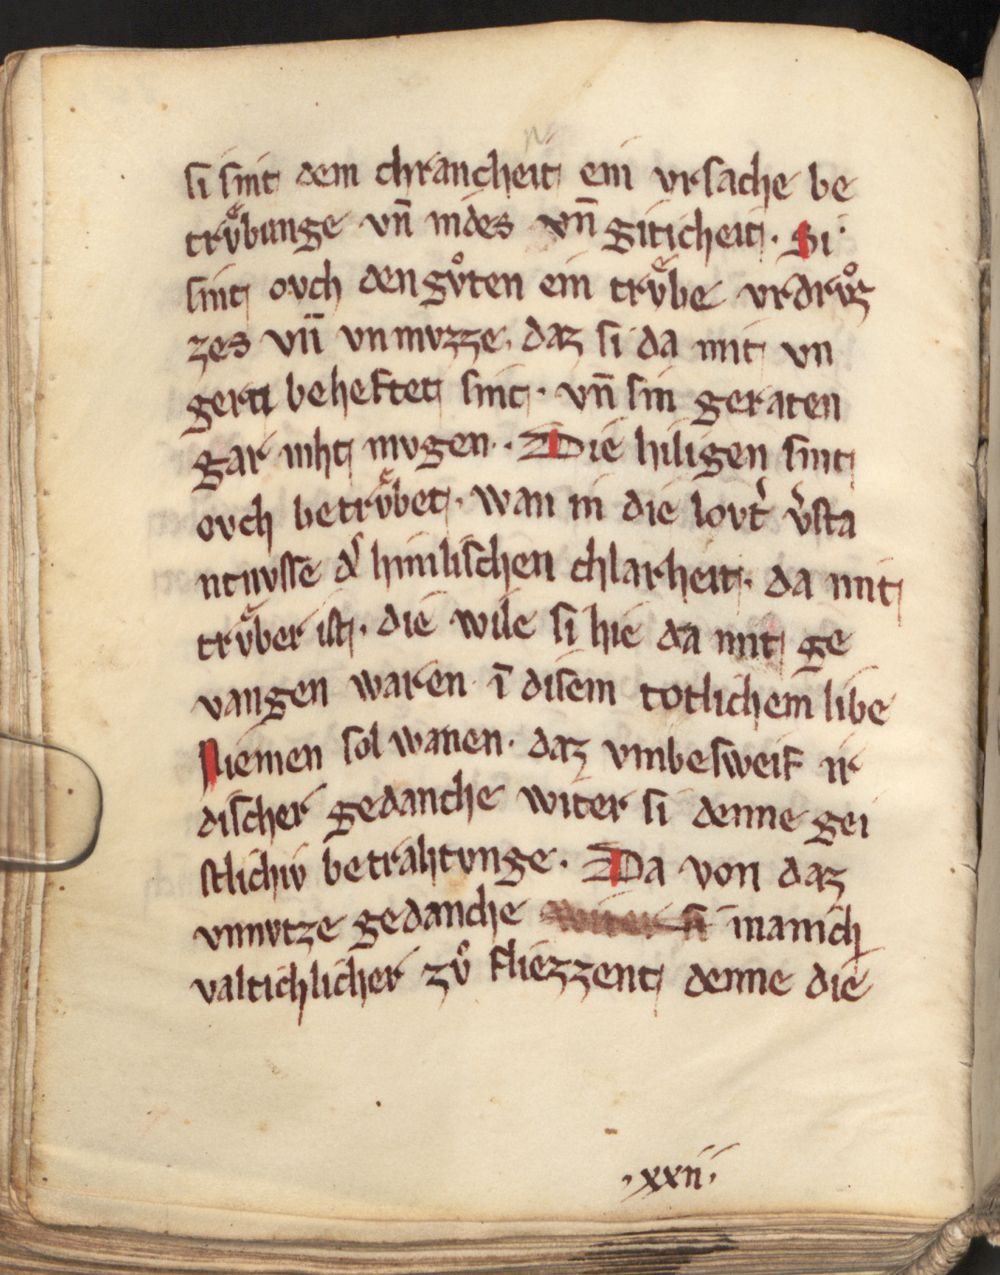 si sint dem chrancheit ein vrsache be
trvͤbunge vn̄ nides vn̄ giticheit. Si
sint ovch den gvͦten ein trvͤbe vrdrvͦz
zes vn̄ vnmvzze. daz si da mit vn
gern beheftet sint. vn̄ sin geraten
gar niht mvgen. Die hiligen sint
ovch betrvͤbet. wan in die lovt͛ v͛sta
ntnvsse d͛ himlischen chlarheit. da mit
trvͤber ist. die wile si hie da mit ge
vangen waren ī disem totlichem libe
Niemen sol wanen. daz vmbesweif ir
discher gedanche witer si denne gei
stlichiv betrahtvnge. Da von daz
vnnvtze gedanche witer si manich
valtichlicher zvͦ fliezzent denne die
.xxii.